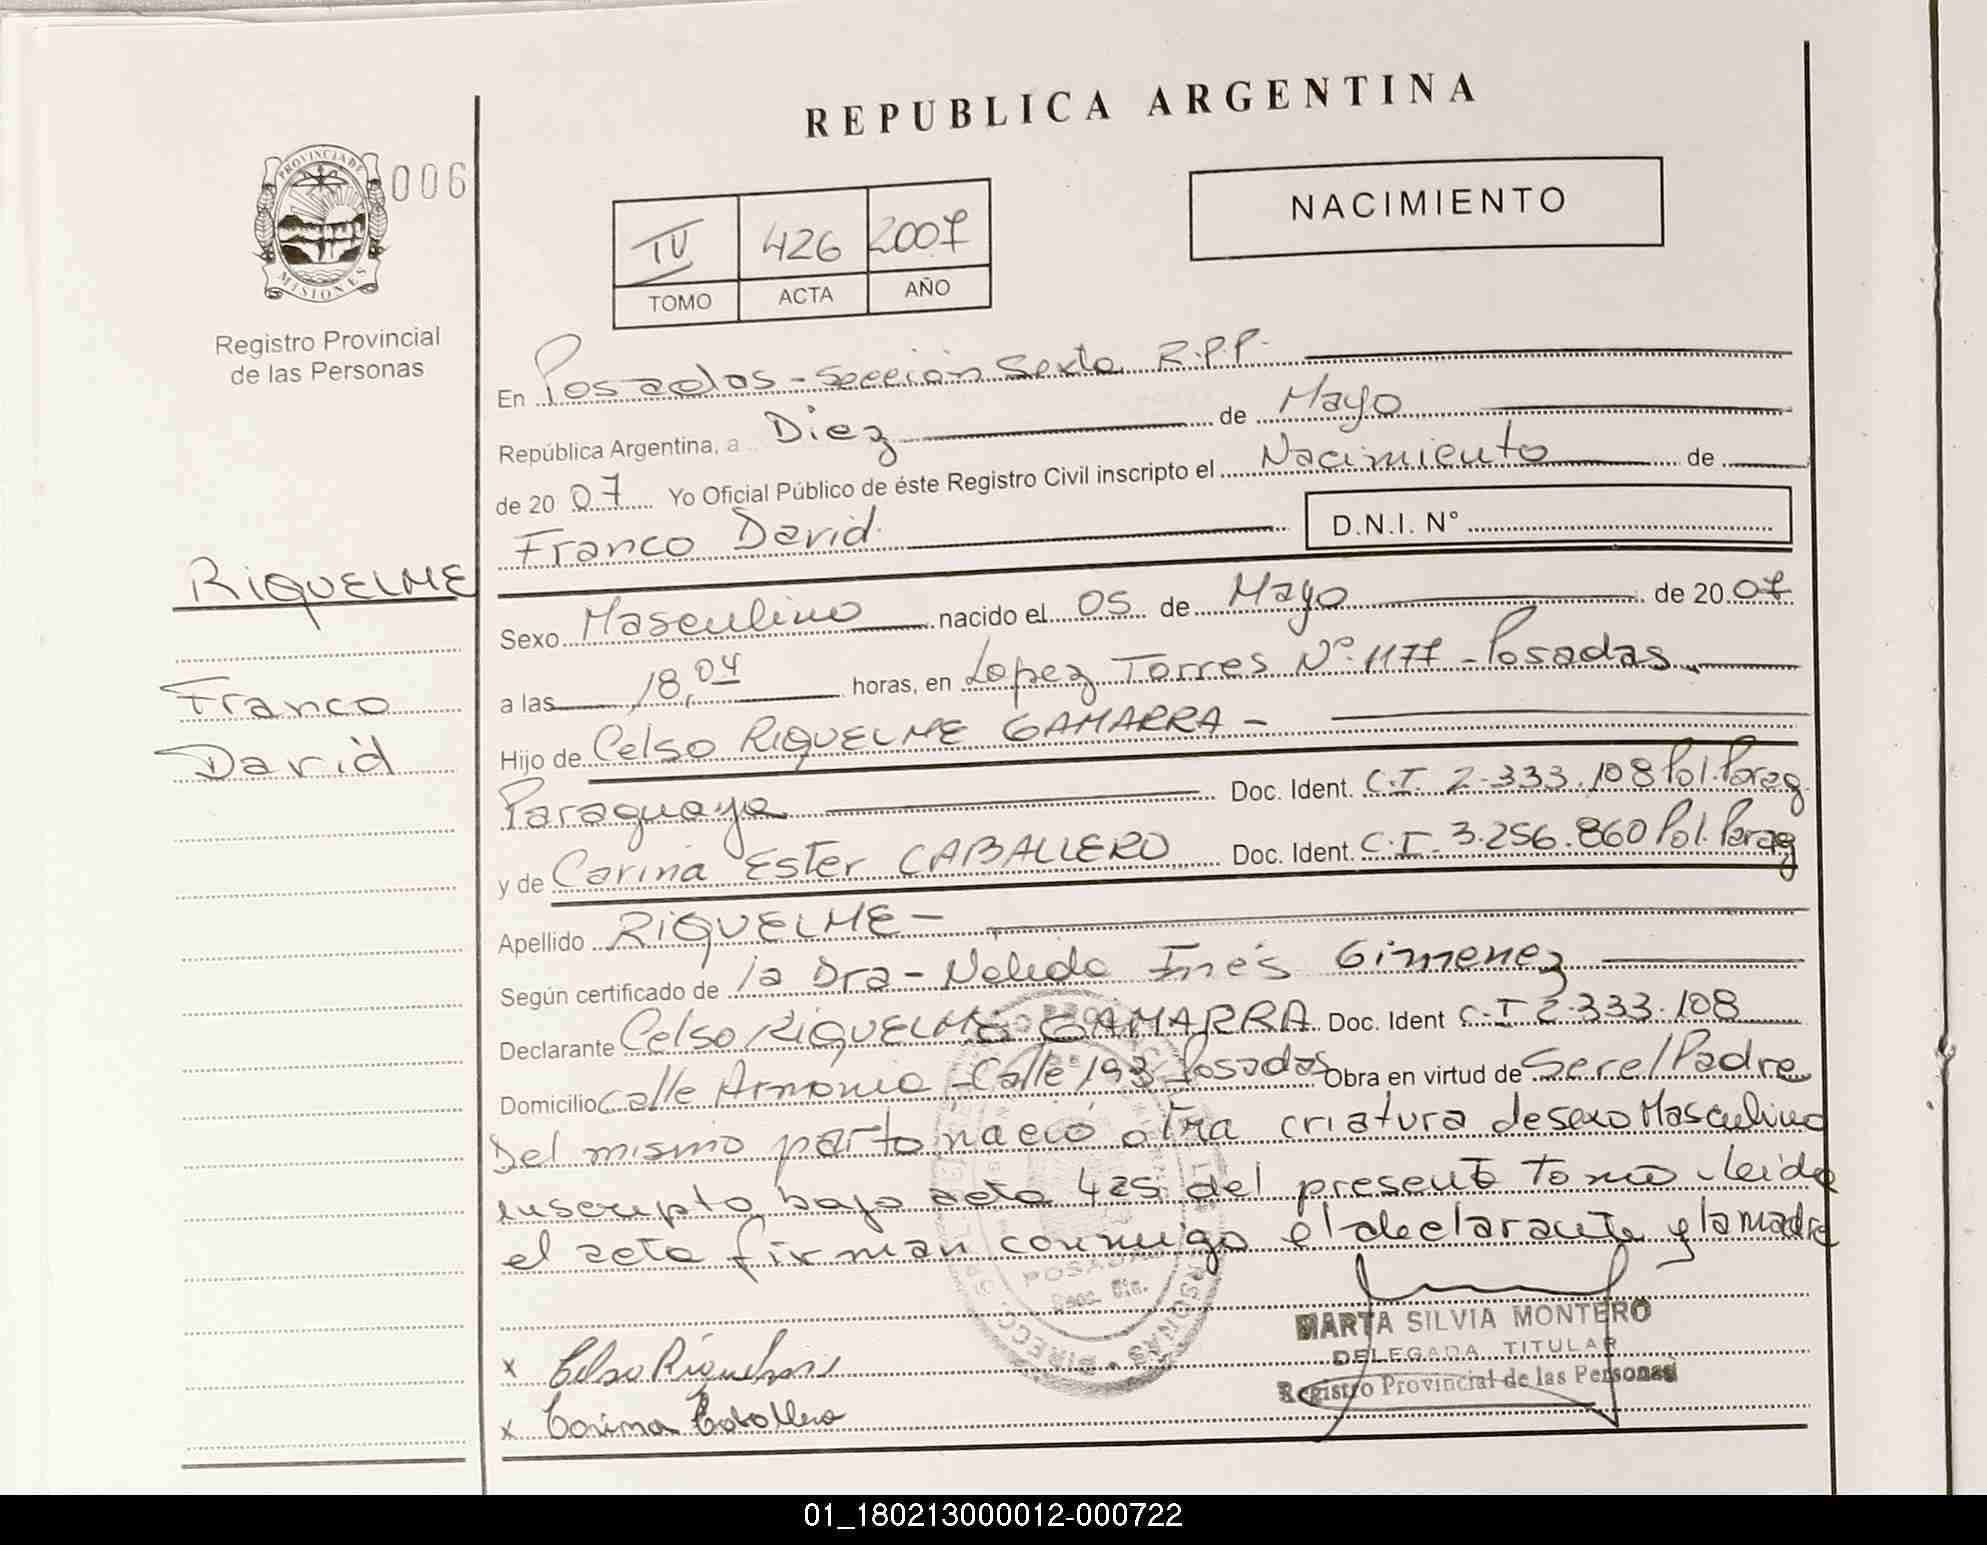 REPUBLICA ARGENTINA
PROVINCIA DE
MISIONES
006
Registro Provincial
de las Personas
NACIMIENTO
IV 426 2007
TOMO ACTA AÑO
En Posadas - Sección Sexta R.P.P.
República Argentina, a Diez de Mayo
de 20 07 Yo Oficial Público de éste Registro Civil inscripto el Nacimiento de
Franco David D.N.I. N°
RIQUELME
Franco
David
Sexo Masculino nacido el 05 de Mayo de 20 07
a las 18,04 horas, en Lopez Torres Nº 1177 - Posadas
Hijo de Celso RIQUELME GAMARRA -
Paraguaya Doc. Ident. C.I. 2.333.108 Pol. Parag
y de Carina Ester CABALLERO Doc. Ident. C.I. 3.256.860 Pol. Parag
Apellido RIQUELME -
Según certificado de la Dra - Nelida Inés Gimenez
Declarante Celso RIQUELME GAMARRA Doc. Ident C.I 2.333.108
Domicilio Calle Armonia - Calle 193 Posadas Obra en virtud de Ser el Padre
Del mismo parto nació otra criatura de sexo Masculino
inscripto bajo acta 425 del presente Tomo leida
el acta firman conmigo el declarante y la madre
POSADAS
Secc. 6ta.
MARTA SILVIA MONTERO
DELEGADA TITULAR
Registro Provincial de las Personas
x Celso Riquelme
x Carina Caballero
01_180213000012-000722